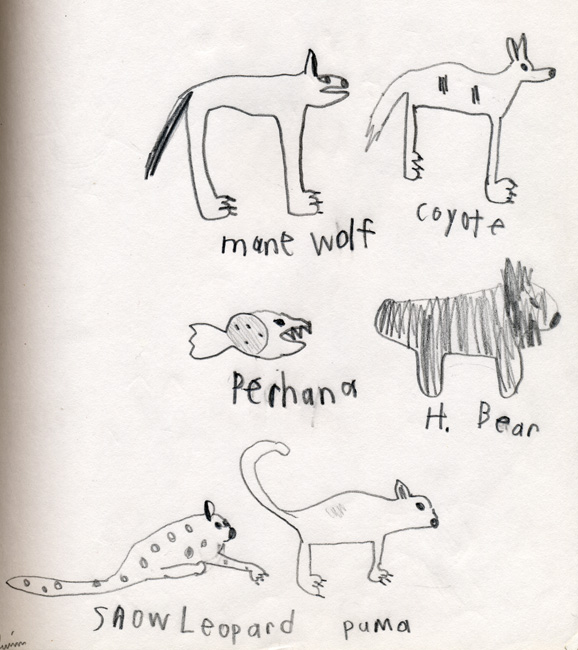 mane wolf
coyote
Perhana
H. Bear
Snow Leopard
puma